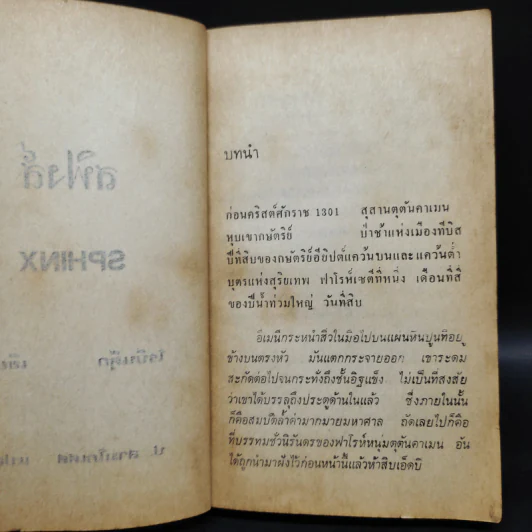 สฟิงส์
SPHINX
โรบินคุ้ก
บทนำ
ก่อนคริสต์ศักราช 1301 สุสานตุตันคาเมน
หุบเขากษัตริย์ ป่าช้าแห่งเมืองทีบิส
ปีที่สิบของกษัตริย์อียิปต์แคว้นบนและแคว้นต่ำ
บุตรแห่งสุริยเทพ ฟาโรห์เซตีที่หนึ่ง เดือนที่สี่
ของปีน้ำท่วมใหญ่ วันที่สิบ
อีเมนีกระหน่ำสิ่วในมือไปบนแผ่นหินปูนที่อยู่
ข้างบนตรงหัว มันแตกกระจายออก เขาระดม
สะกัดต่อไปจนกระทั่งถึงชั้นอิฐแข็ง ไม่เป็นที่สงสัย
ว่าเขาได้บรรลุถึงประตูด้านในแล้ว ซึ่งภายในนั้น
ก็คือสมบัติล้ำค่ามากมายมหาศาล ถัดเลยไปก็คือ
ที่บรรทมชั่วนิรันดรของฟาโรห์หนุ่มตุตันคาเมน อัน
ได้ถูกนำมาฝังไว้ก่อนหน้านี้แล้วห้าสิบเอ็ดปี